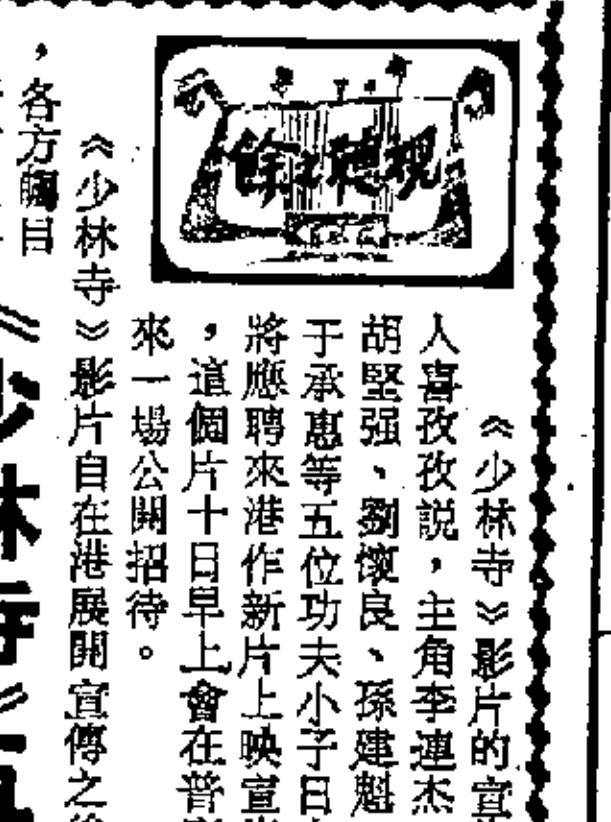 視聽之餘
《少林寺》影片的宣
人喜孜孜説，主角李連杰
胡堅强、劉懷良、孫建魁
于承惠等五位功夫小子日
將應聘來港作新片上映宣
，這個片十日早上會在普
來一場公開招待。
《少林寺》影片自在港展開宣傳之後
，各方矚目
《少林寺》五